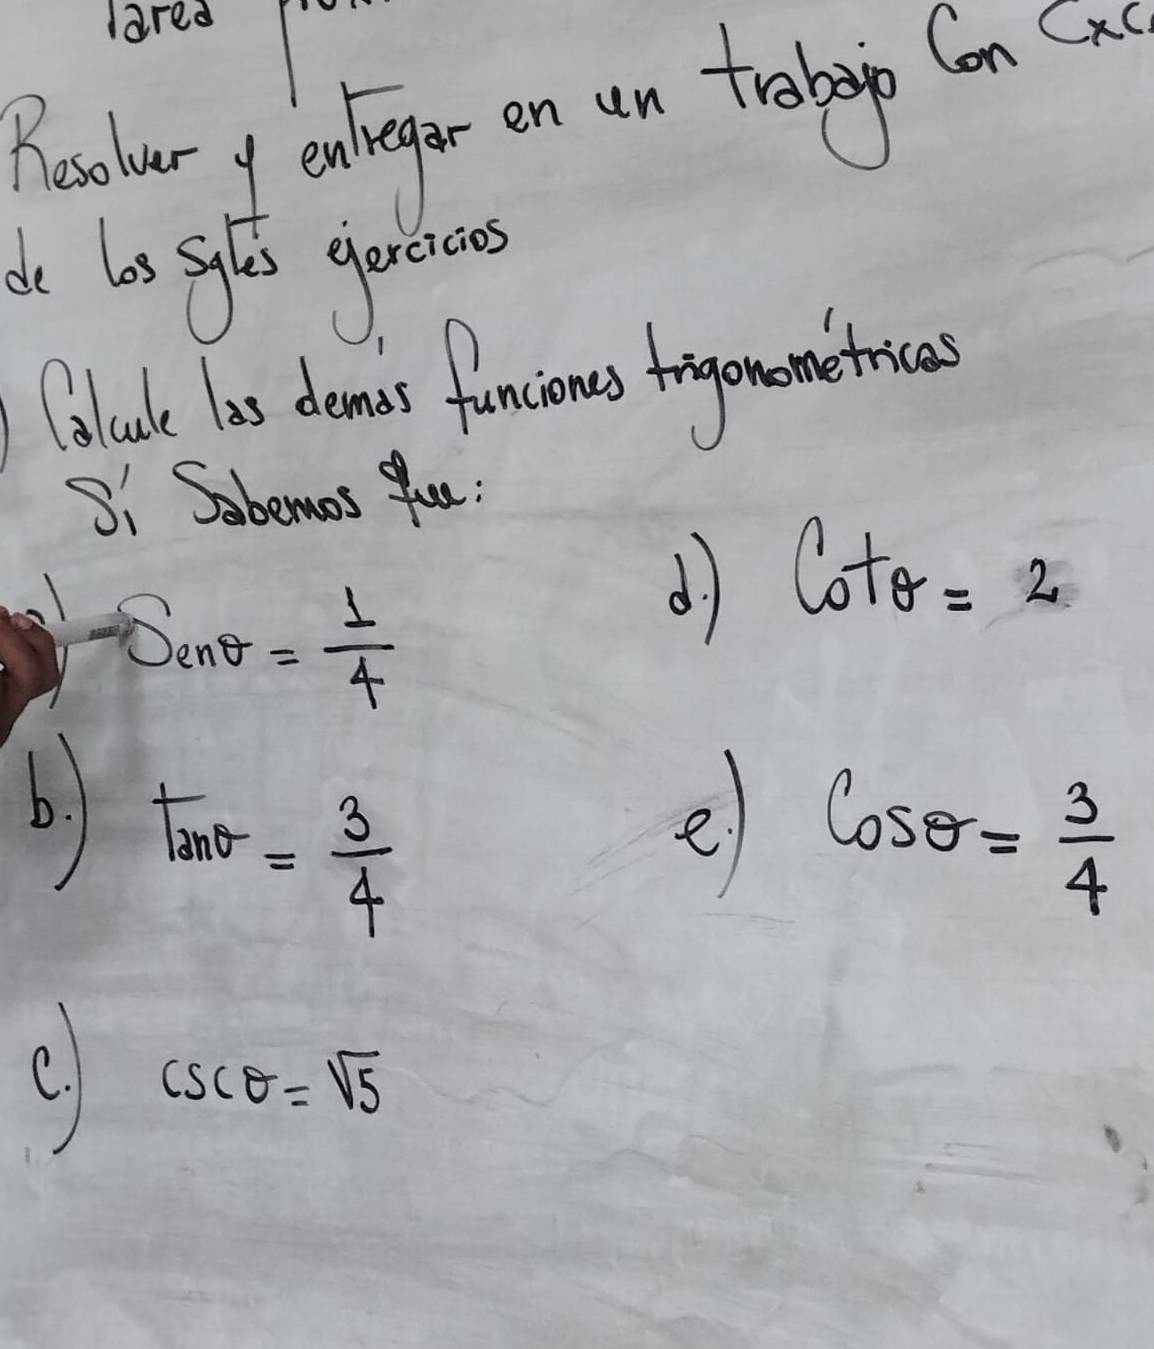 Tarea
Resolver y entregar en un trabajo Con
de los sgtes ejercicios
Calcule las demás funciones trigonométricas
Sí Sabemos que:
Senθ = 1/4
b.) Tanθ = 3/4
c.) cscθ = √5
d.) Cotθ = 2
e.) Cosθ = 3/4